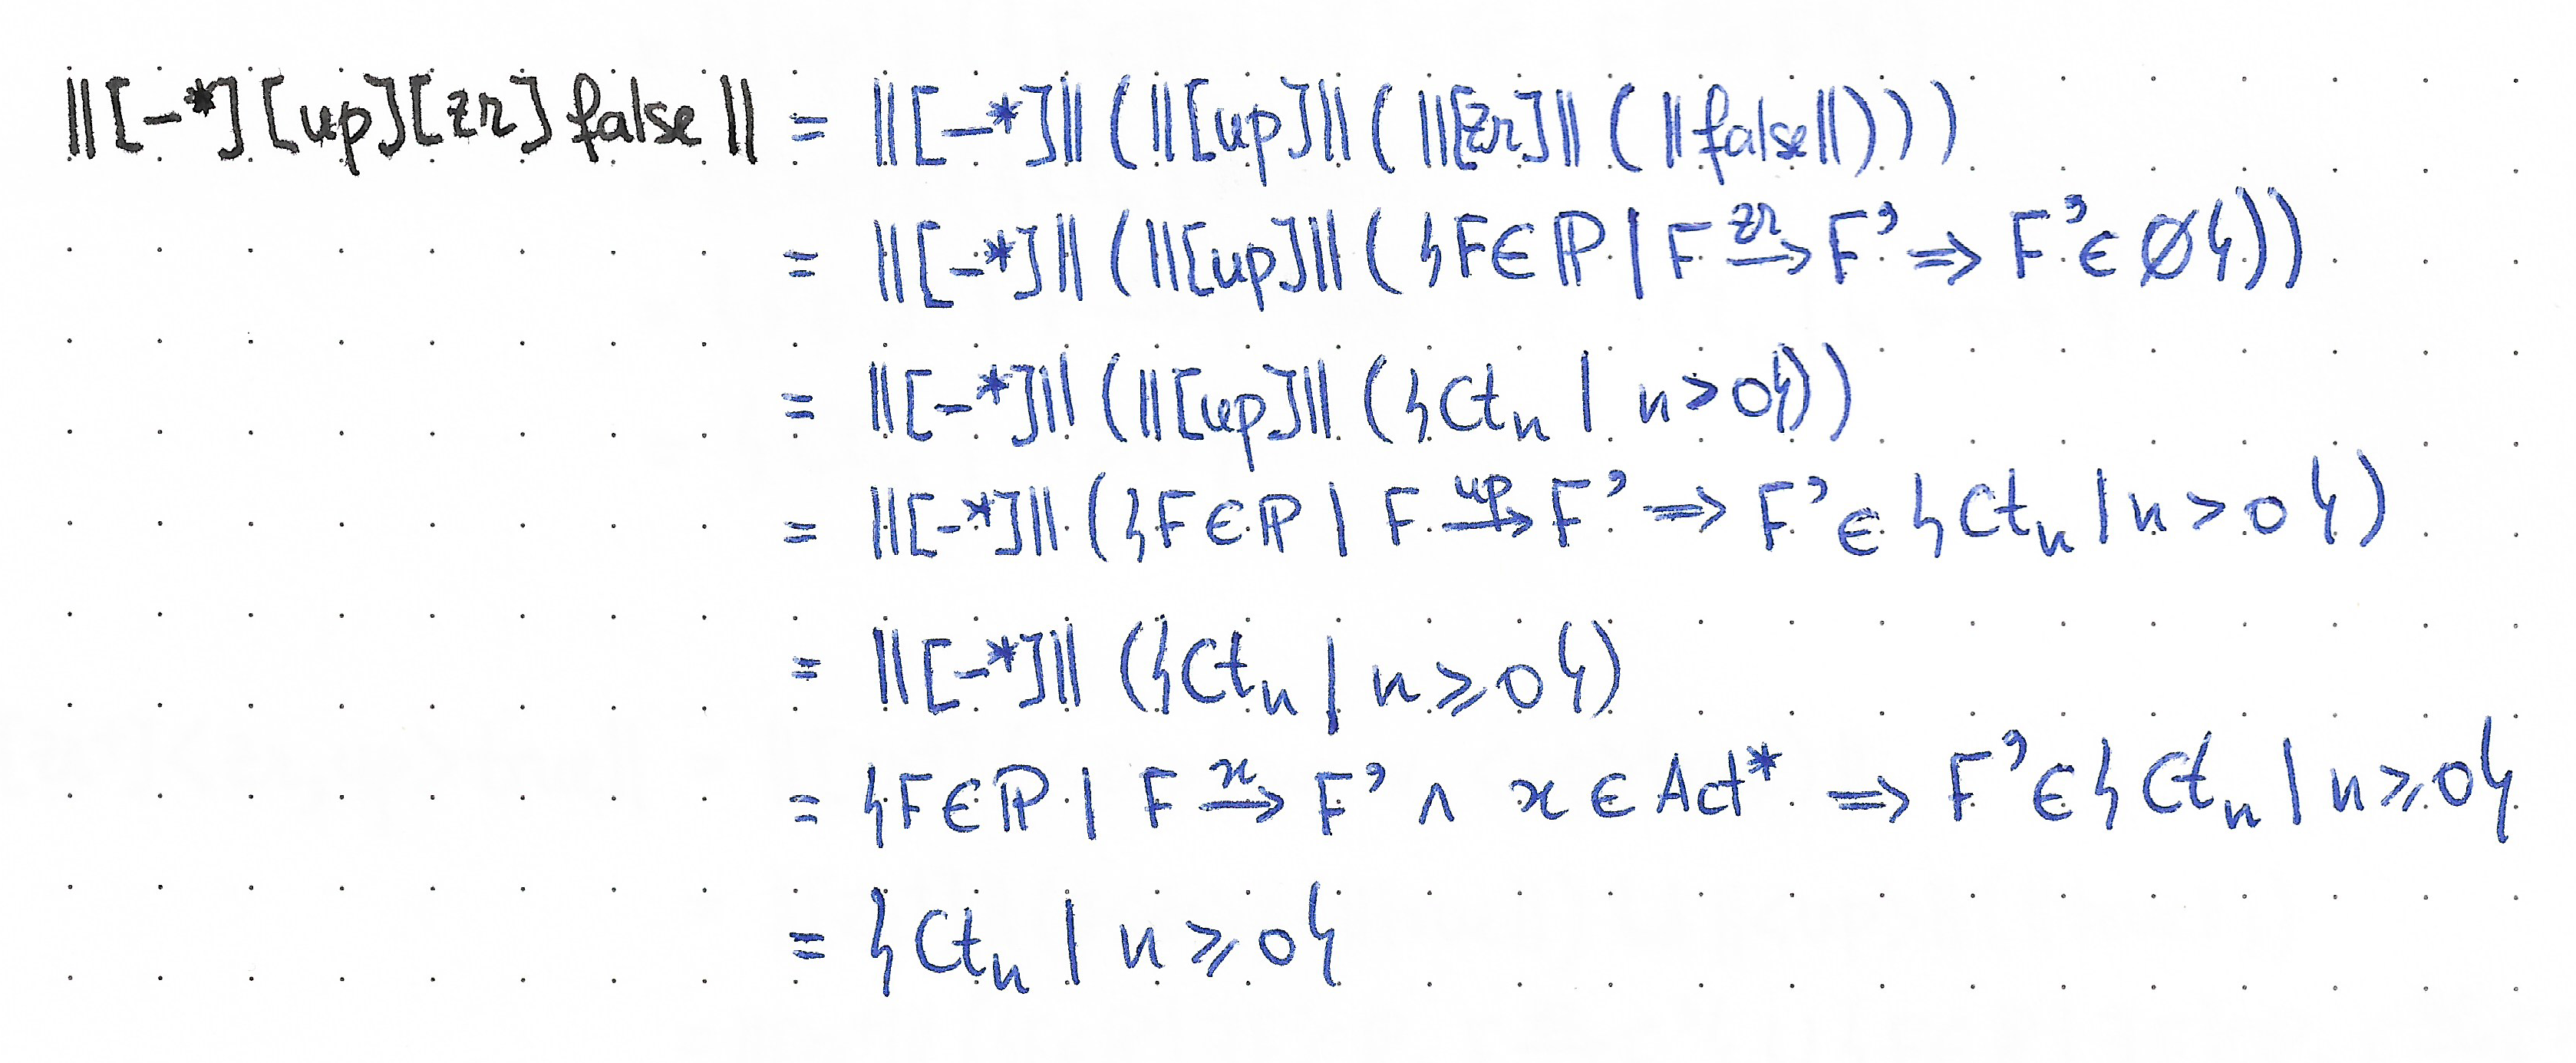 ||[-*][up][zr] false|| = ||[-*]|| (||[up]|| (||[zr]|| (||false||)))
= ||[-*]|| (||[up]|| ({F ∈ ℙ | F →^{zr} F' ⇒ F' ∈ ∅}))
= ||[-*]|| (||[up]|| ({Ct_n | n > 0}))
= ||[-*]|| ({F ∈ ℙ | F →^{up} F' ⇒ F' ∈ {Ct_n | n > 0})
= ||[-*]|| ({Ct_n | n ≥ 0})
= {F ∈ ℙ | F →^{x} F' ∧ x ∈ Act* ⇒ F' ∈ {Ct_n | n ≥ 0}
= {Ct_n | n ≥ 0}